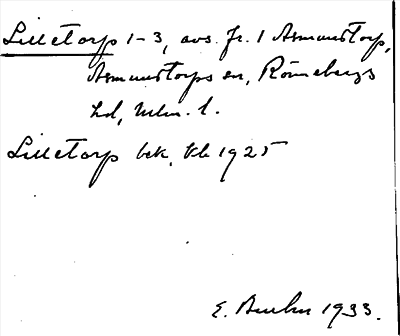 Lilletorp 1-3, avs. fr. 1 Asmundtorp,
Asmundtorps sn, Rönnebergs
hd, Mlm. l.
Lilletorp bek, Kb 1925
E. 1933.